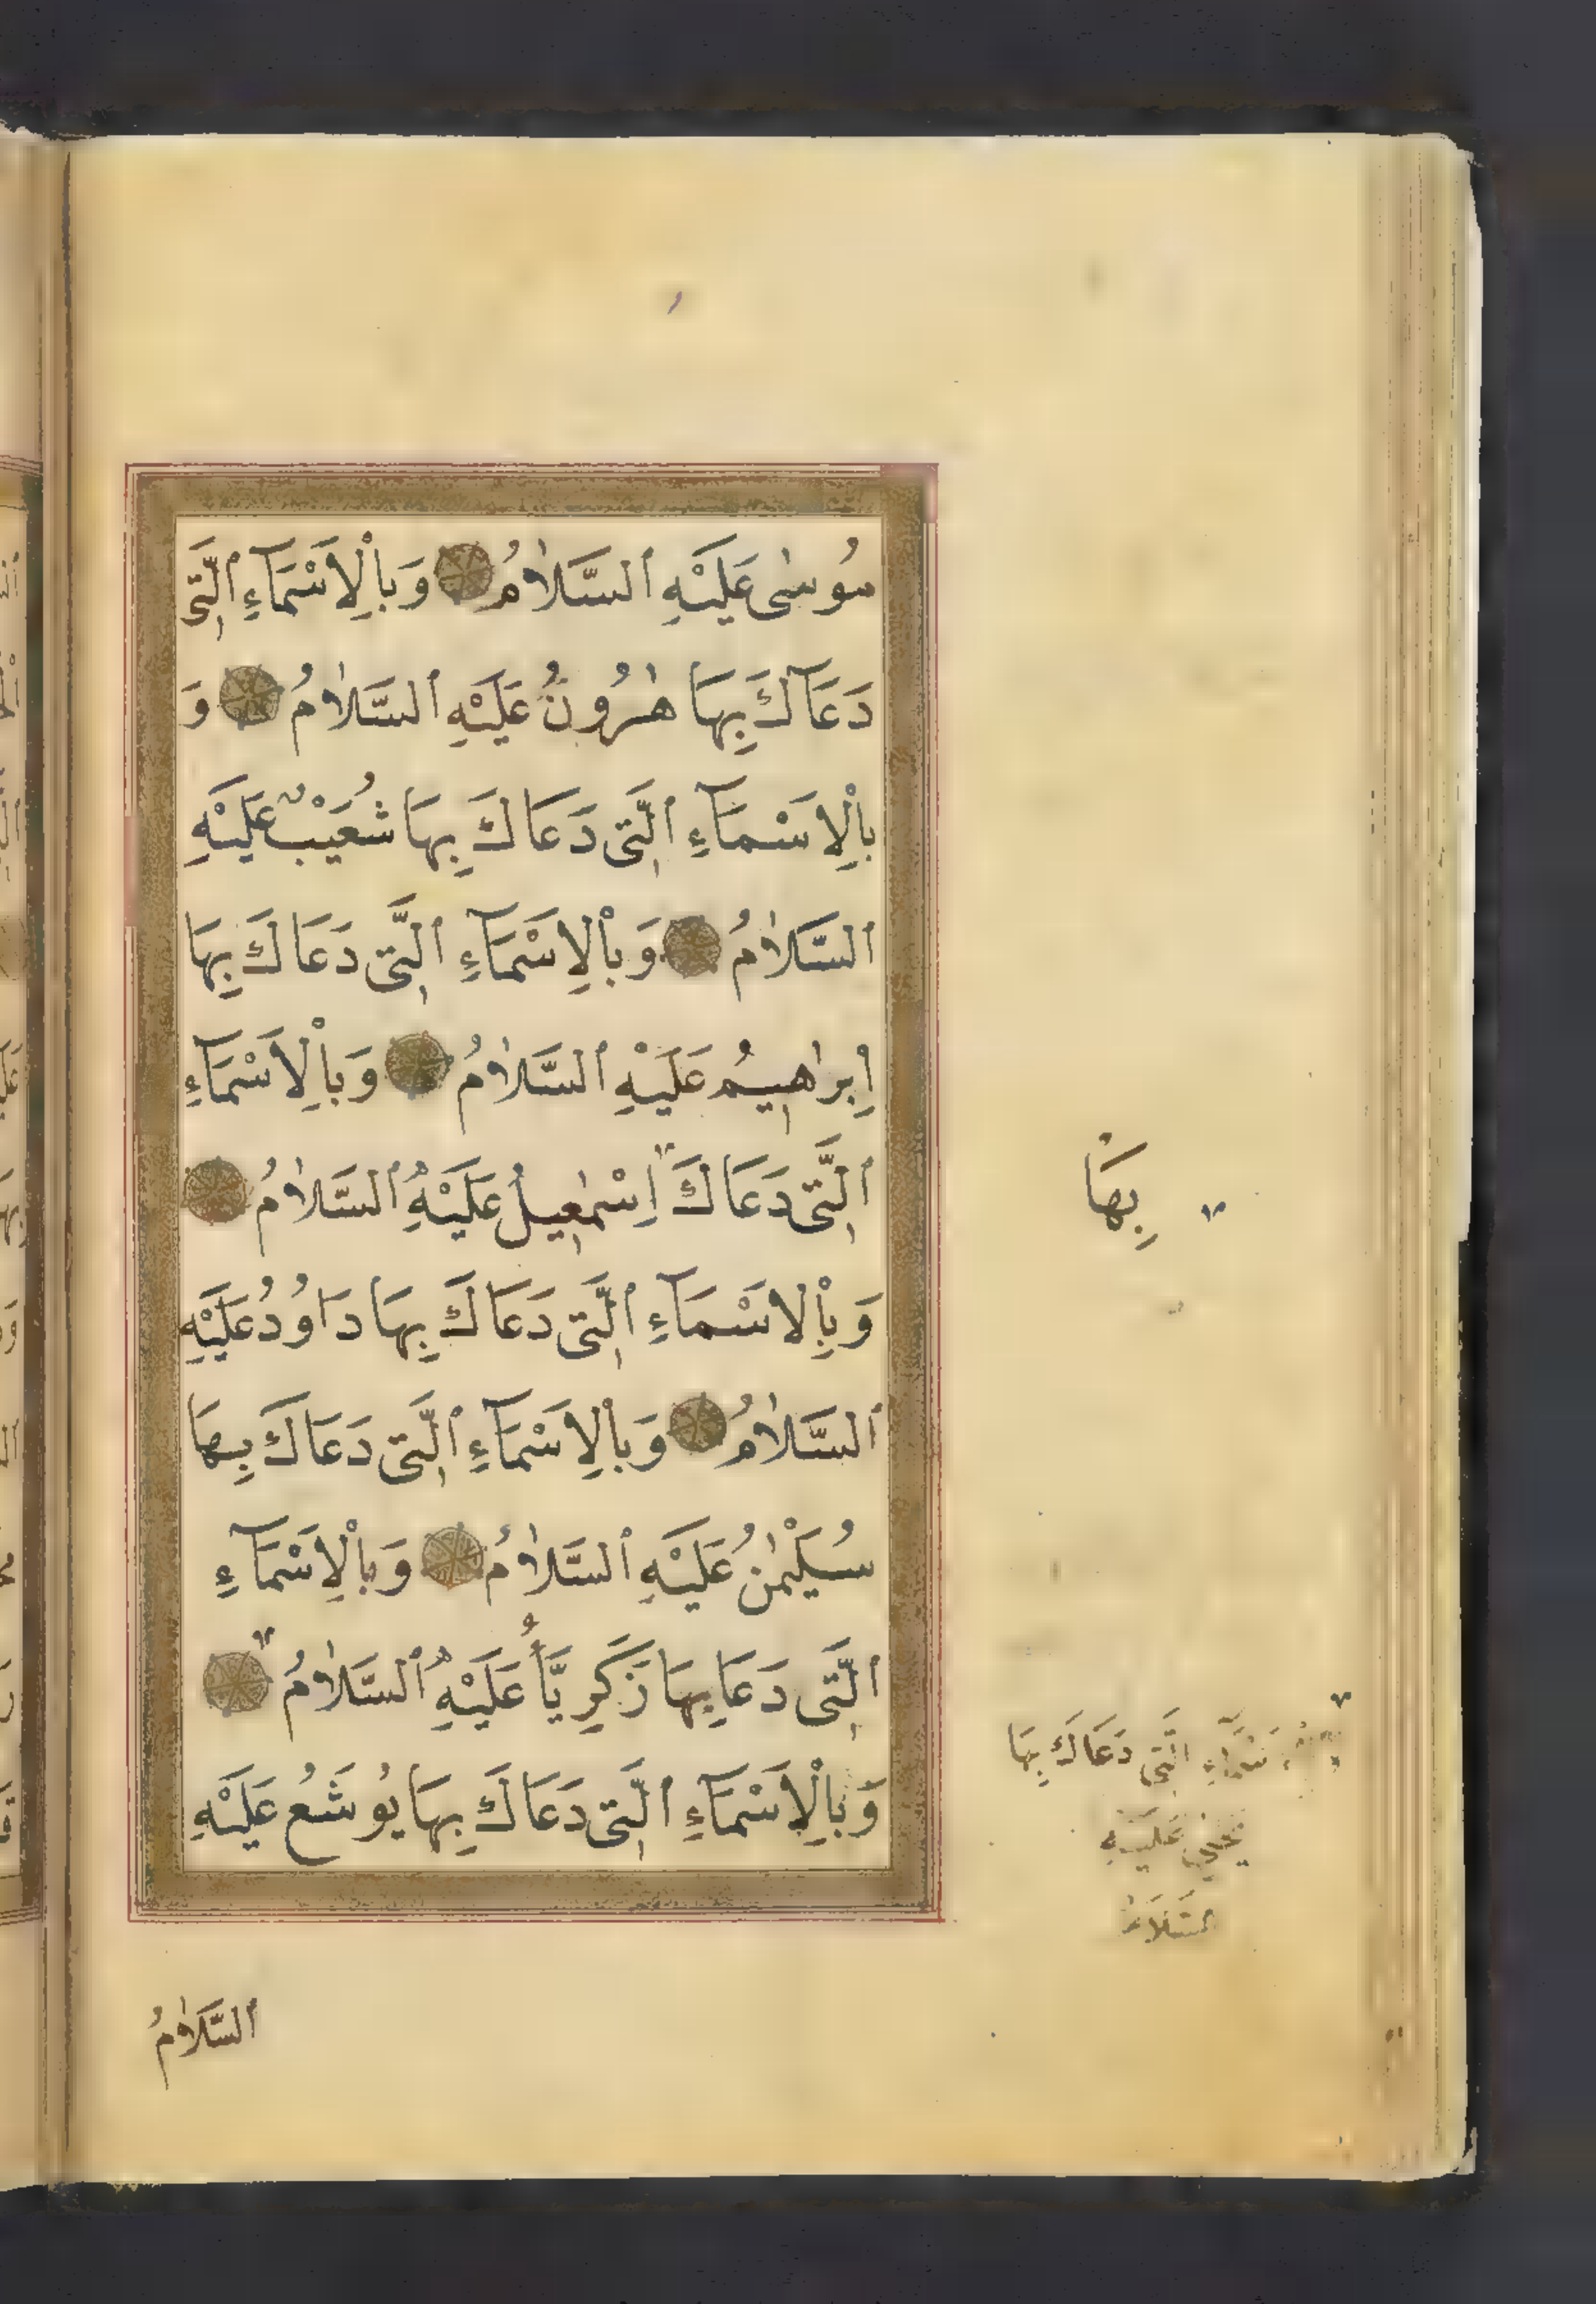 مُوسٰى عَلَيْهِ السَّلَامُ وَبِالْاَسْمَآءِ الَّتِى
دَعَاكَ بِهَا هٰرُونُ عَلَيْهِ السَّلَامُ وَ
بِالْاَسْمَآءِ الَّتِى دَعَاكَ بِهَا شُعَيْبٌ عَلَيْهِ
السَّلَامُ وَبِالْاَسْمَآءِ الَّتِى دَعَاكَ بِهَا
اِبْرَاهِيمُ عَلَيْهِ السَّلَامُ وَبِالْاَسْمَآءِ
الَّتِى دَعَاكَ اِسْمٰعِيلُ عَلَيْهِ السَّلَامُ
بِهَا
وَبِالْاَسْمَآءِ الَّتِى دَعَاكَ بِهَا دَاوُدُ عَلَيْهِ
السَّلَامُ وَبِالْاَسْمَآءِ الَّتِى دَعَاكَ بِهَا
سُلَيْمٰنُ عَلَيْهِ السَّلَامُ وَبِالْاَسْمَآءِ
الَّتِى دَعَا بِهَا زَكَرِيَّاُ عَلَيْهِ السَّلَامُ
وَبِالْاَسْمَآءِ الَّتِى دَعَاكَ بِهَا يُوشَعُ عَلَيْهِ
الَّتِى دَعَاكَ بِهَا
عَلَيْهِ
السَّلَامُ
السَّلَامُ